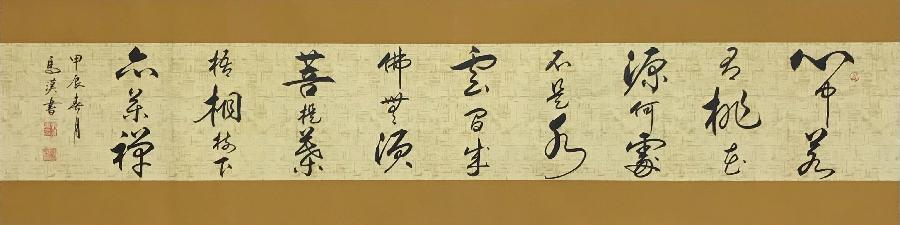 心中若
有桃花
源何處
不是水
雲間成
佛無須
菩提葉
梧桐樹下
亦參禪
甲辰春月
馬漢書